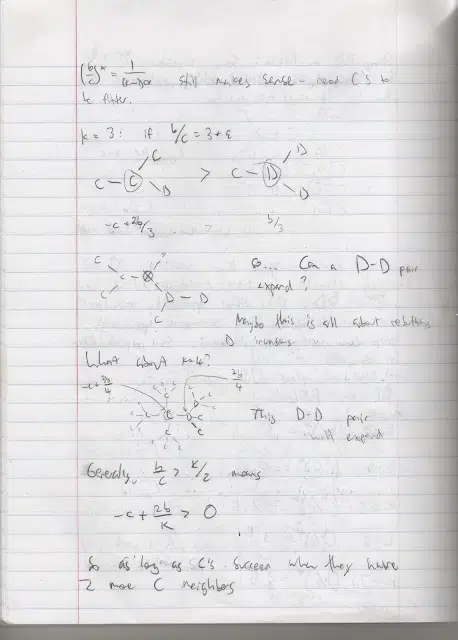 (b/c)* = 1/ still makes sense - need C's to
be fitter.
k = 3: if b/c = 3+ε
C C D
C – Ⓒ > C – Ⓓ
D D
-c + 2b/3 > b/3
C ?
C – ⊗ So... Can a D-D pair
C D – D expand?
C
Maybe this is all about rebutting
D invasions
What about k=4?
-c+3b/4 2b/4
C C D C This D-D pair
C C will expand
Generally, b/c > k/2 means
-c + 2b/k > 0
So as long as C's succeed when they have
2 more C neighbors